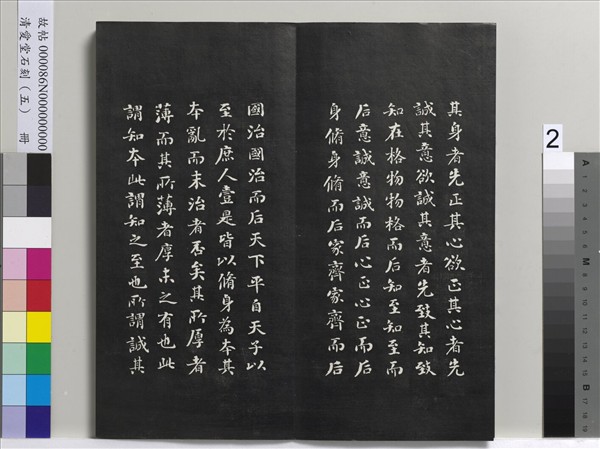 其身者先正其心欲正其心者先
誠其意欲誠其意者先致其知致
知在格物物格而后知至知至而
后意誠意誠而后心正心正而后
身脩身脩而后家齊家齊而后
國治國治而后天下平自天子以
至於庶人壹是皆以脩身為本其
本亂而末治者否矣其所厚者
薄而其所薄者厚未之有也此
謂知本此謂知之至也所謂誠其
故帖 000086N000000000
清愛堂石刻（五） 冊
2
A 1 2 3 4 5 6 M 8 9 10 11 12 13 14 15 B 17 18 19